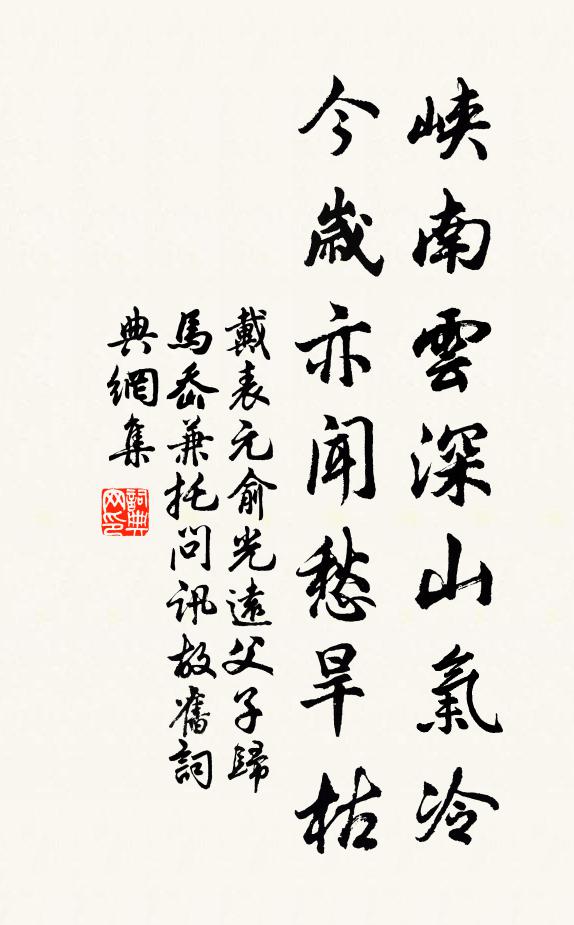 峽南雲深山氣冷
今歲亦聞愁旱枯
戴表元俞光遠父子歸
馬岙兼托問訊故舊詞
典網集
詞典
网印